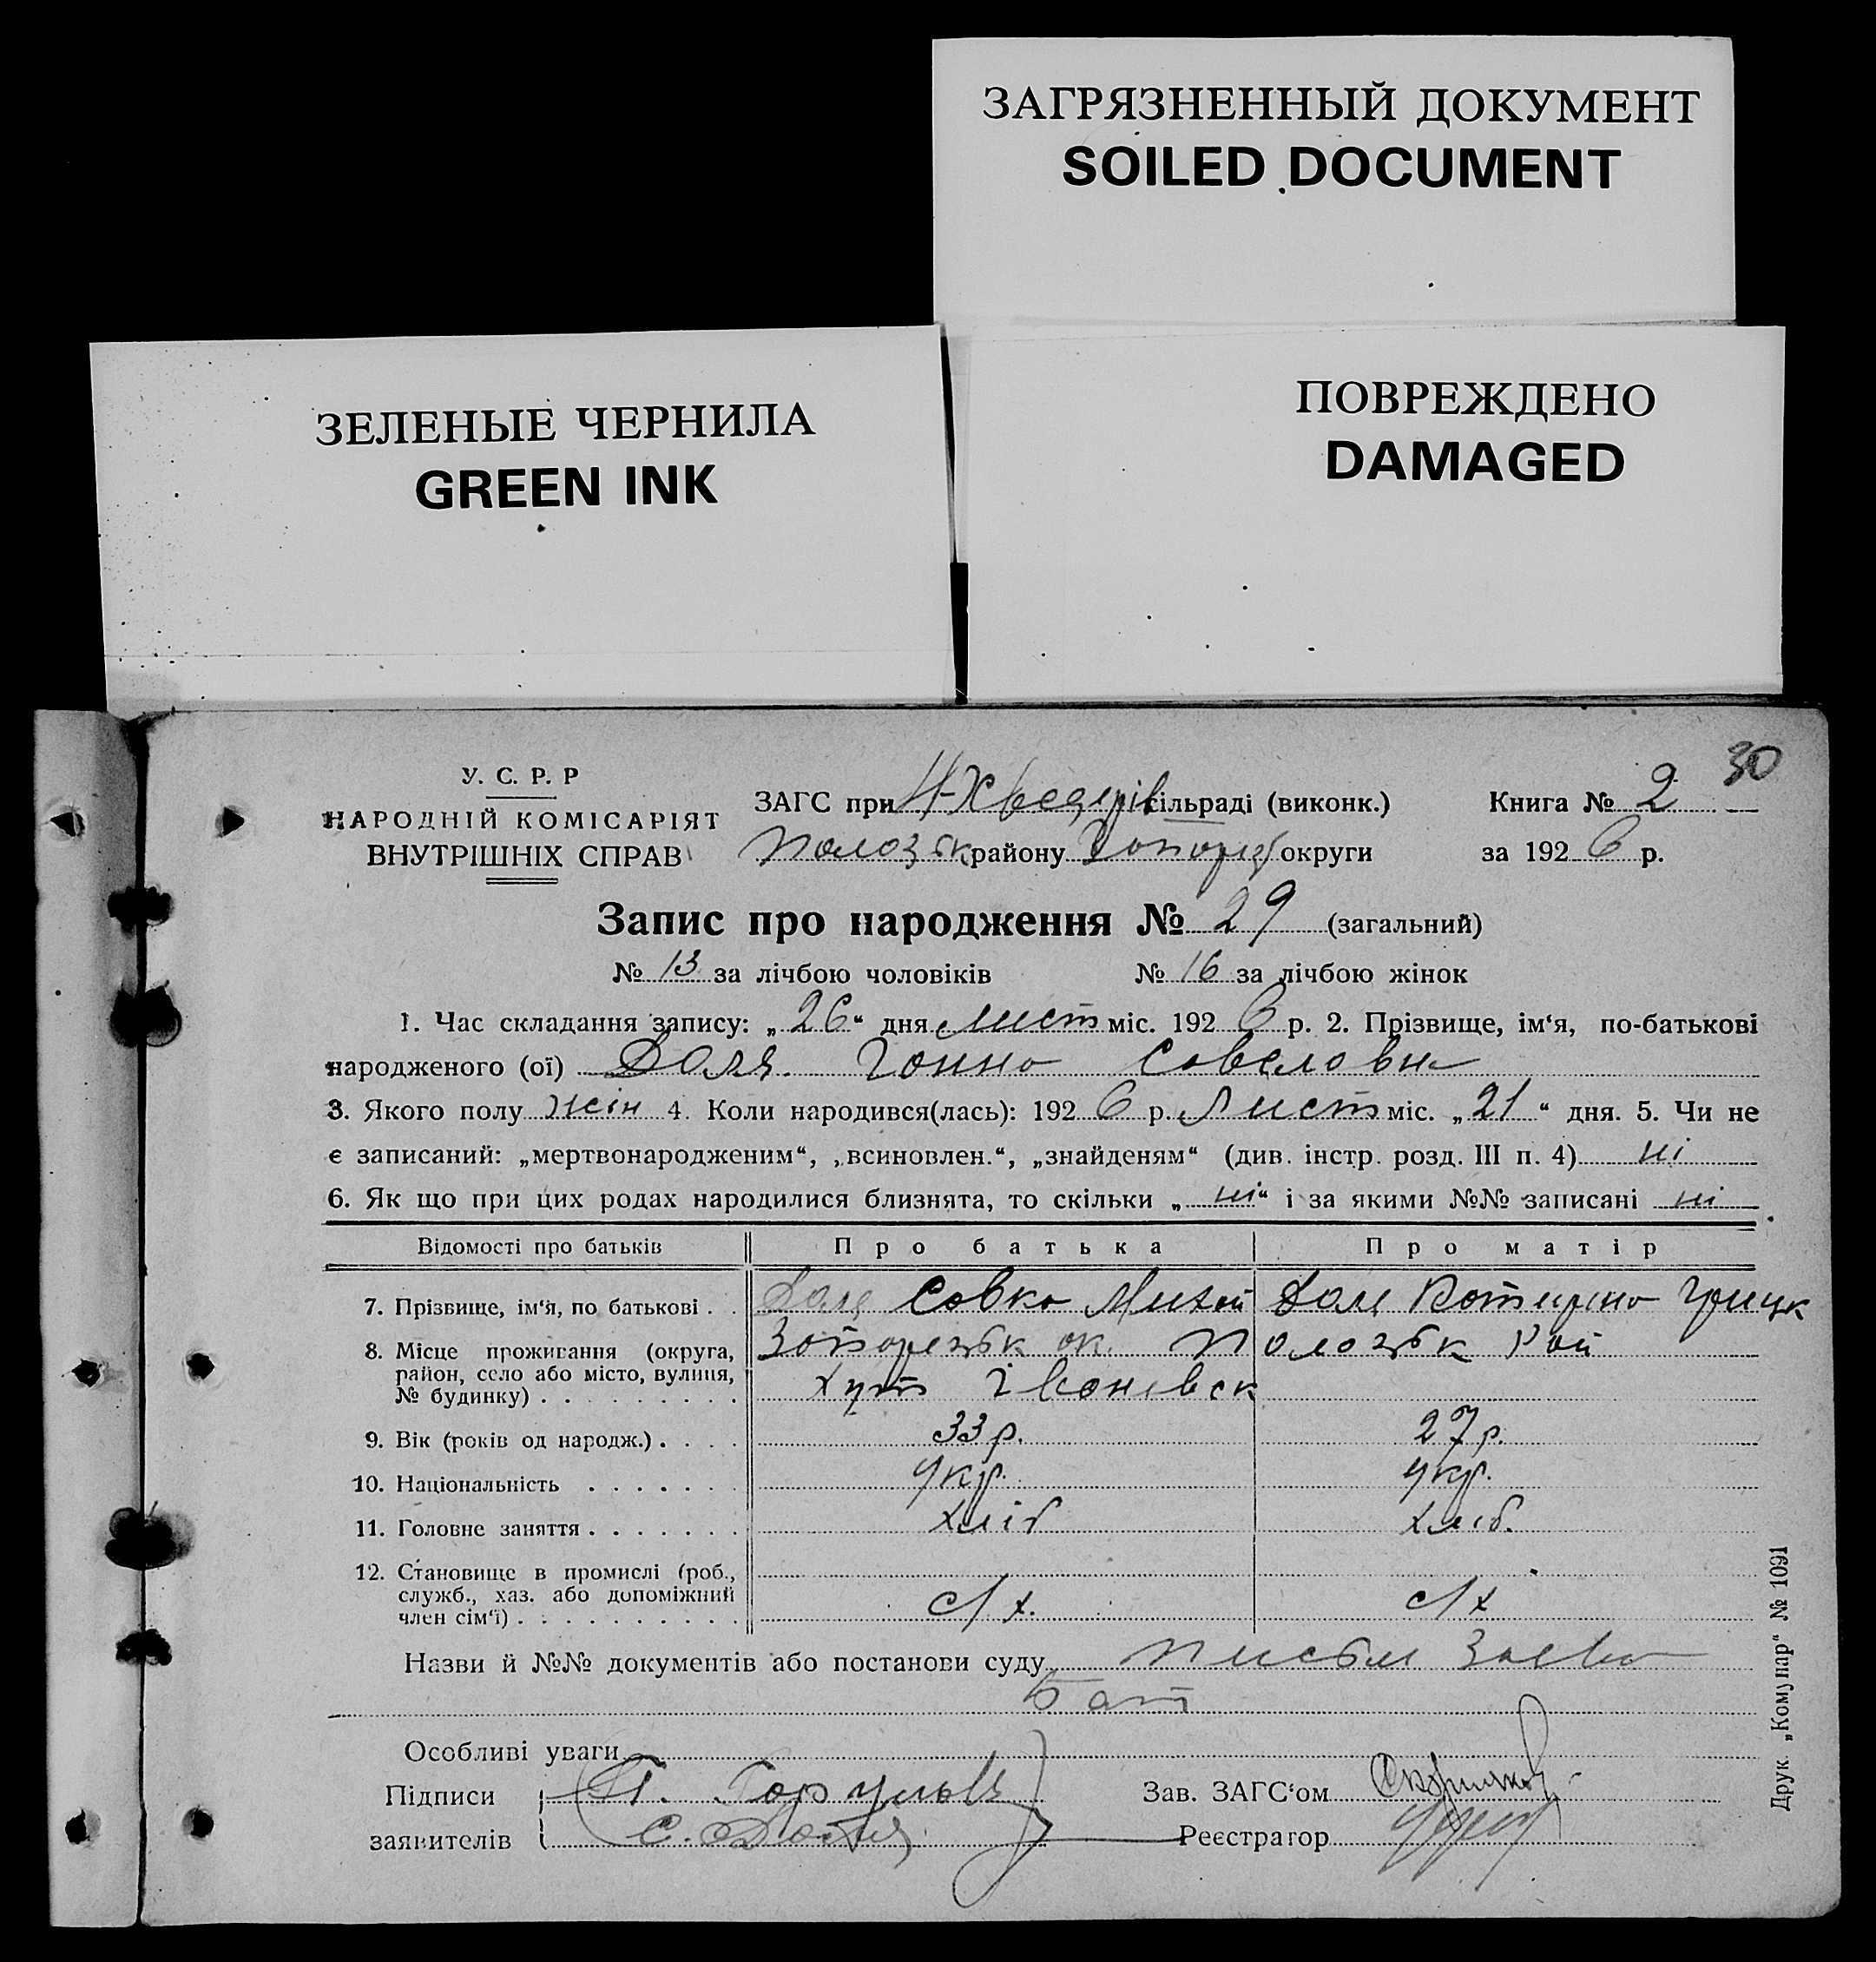 ЗАГРЯЗНЕННЫЙ ДОКУМЕНТ
SOILED DOCUMENT
ЗЕЛЕНЫЕ ЧЕРНИЛА
GREEN INK
ПОВРЕЖДЕНО
DAMAGED
30
У. С. Р. Р
НАРОДНІЙ КОМІСАРІЯТ
ВНУТРІШНІХ СПРАВ
ЗАГС при сільраді (виконк.) Книга № 2
району округи за 1926 р.
Запис про народження № 29 (загальний)
№ 13 за лічбою чоловіків № 16 за лічбою жінок
1. Час складання запису: „26“ дня лист міс. 1926 р. 2. Прізвище, ім‘я, по-батькові
народженого (ої) Доля Ганна Савеловна
3. Якого полу жін 4. Коли народився(лась): 1926 р. Лист міс. „21“ дня. 5. Чи не
є записаний: „мертвонародженим“, „всиновлен.“, „знайденям“ (див. інстр. розд. III п. 4) ні
6. Як що при цих родах народилися близнята, то скільки „ні“ і за якими №№ записані ні
Відомості про батьків Про батька Про матір
7. Прізвище, ім‘я, по батькові . . Доля Савка Михай Доля Катирина Грицк
8. Місце проживання (округа, район, село або місто, вулиця, № будинку) . . . . . . . . . ок. Пологзьк Рай
Хут
9. Вік (років од народж.) . . . . 33 р. 27 р.
10. Національність . . . . . . . укр. укр.
11. Головне заняття . . . . . . . хліб хліб.
12. Становище в промислі (роб., служб., хаз. або допоміжний член сім‘ї) . . . . . . . . . . с/х. с/х
Назви й №№ документів або постанови суду Письм Заева
Бат
Особливі уваги
Підписи заявителів
С. Доля
Зав. ЗАГС‘ом
Реєстратор
Друк. „Комунар“ № 1091